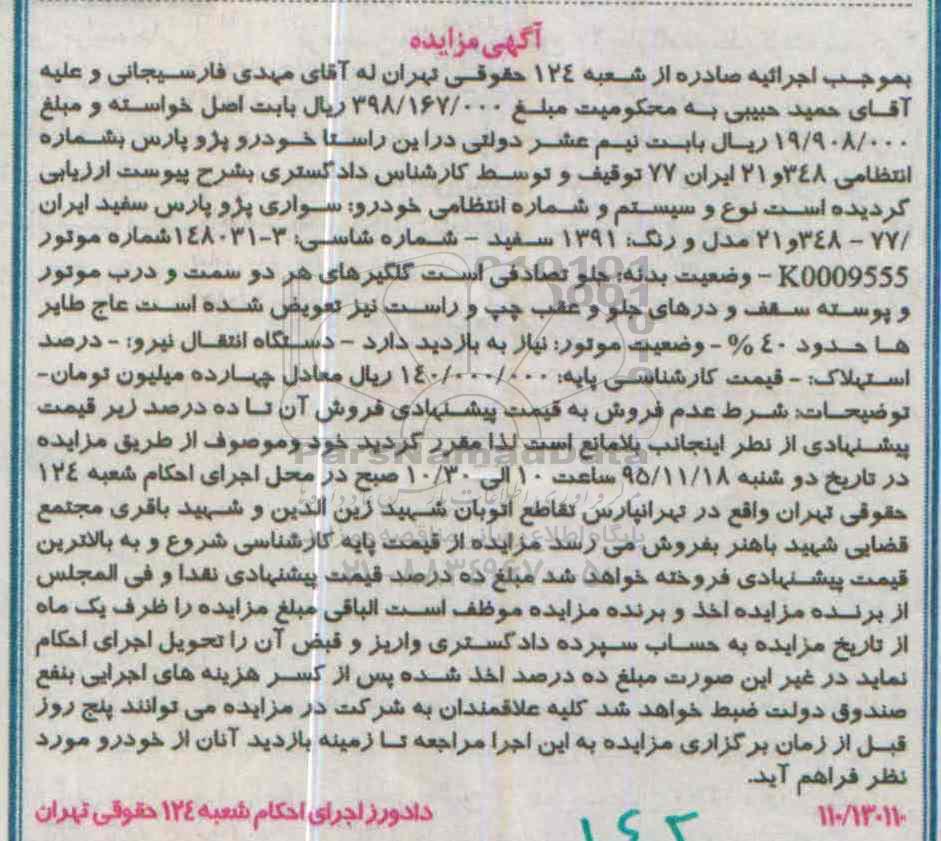 آگهی مزایده
بموجب اجرائیه صادره از شعبه ١٢٤ حقوقی تهران له آقای مهدی فارسیجانی و علیه
آقای حمید حبیبی به محکومیت مبلغ ٣٩٨/١٦٧/٠٠٠ ریال بابت اصل خواسته و مبلغ
١٩/٩٠٨/٠٠٠ ریال بابت نیم عشر دولتی دراین راستا خودرو پژو پارس بشماره
انتظامی ٣٤٨و٢١ ایران ٧٧ توقیف و توسط کارشناس دادگستری بشرح پیوست ارزیابی
گردیده است نوع و سیستم و شماره انتظامی خودرو: سواری پژو پارس سفید ایران
/٧٧ – ٣٤٨و٢١ مدل و رنگ: ١٣٩١ سفید – شماره شاسی: ٣-١٤٨٠٣١شماره موتور
K0009555 – وضعیت بدنه: جلو تصادفی است گلگیرهای هر دو سمت و درب موتور
و پوسته سقف و درهای جلو و عقب چپ و راست نیز تعویض شده است عاج طایر
ها حدود ٤٠ % – وضعیت موتور: نیاز به بازدید دارد – دستگاه انتقال نیرو: – درصد
استهلاک: – قیمت کارشناسی پایه: ١٤٠/٠٠٠/٠٠٠ ریال معادل چهارده میلیون تومان-
توضیحات: شرط عدم فروش به قیمت پیشنهادی فروش آن تا ده درصد زیر قیمت
پیشنهادی از نظر اینجانب بلامانع است لذا مقرر گردید خودوموصوف از طریق مزایده
در تاریخ دو شنبه ٩٥/١١/١٨ ساعت ١٠ الی ١٠/٣٠ صبح در محل اجرای احکام شعبه ١٢٤
حقوقی تهران واقع در تهرانپارس تقاطع اتوبان شهید زین الدین و شهید باقری مجتمع
قضایی شهید باهنر بفروش می رسد مزایده از قیمت پایه کارشناسی شروع و به بالاترین
قیمت پیشنهادی فروخته خواهد شد مبلغ ده درصد قیمت پیشنهادی نقدا و فی المجلس
از برنده مزایده اخذ و برنده مزایده موظف است الباقی مبلغ مزایده را ظرف یک ماه
از تاریخ مزایده به حساب سپرده دادگستری واریز و قبض آن را تحویل اجرای احکام
نماید در غیر این صورت مبلغ ده درصد اخذ شده پس از کسر هزینه های اجرایی بنفع
صندوق دولت ضبط خواهد شد کلیه علاقمندان به شرکت در مزایده می توانند پنج روز
قبل از زمان برگزاری مزایده به این اجرا مراجعه تا زمینه بازدید آنان از خودرو مورد
نظر فراهم آید.
١١٠/١٣٠١١٠ دادورز اجرای احکام شعبه ١٢٤ حقوقی تهران
ParsNamadData